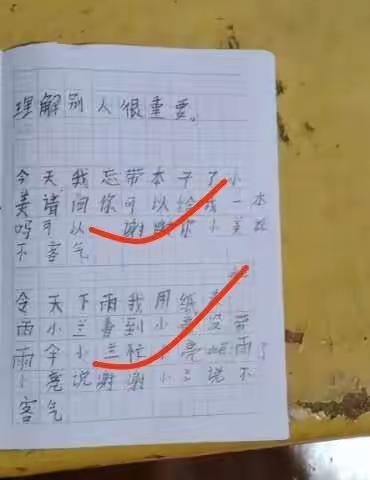 理解别人很重要。
今天我忘带本子了小
美请问你可以给我一本
吗可以 谢谢你小美
不客气
今天下雨我用纸
雨小兰看到小亮没带
雨伞小兰忙 小亮 雨了
小亮说谢谢小兰说不
客气